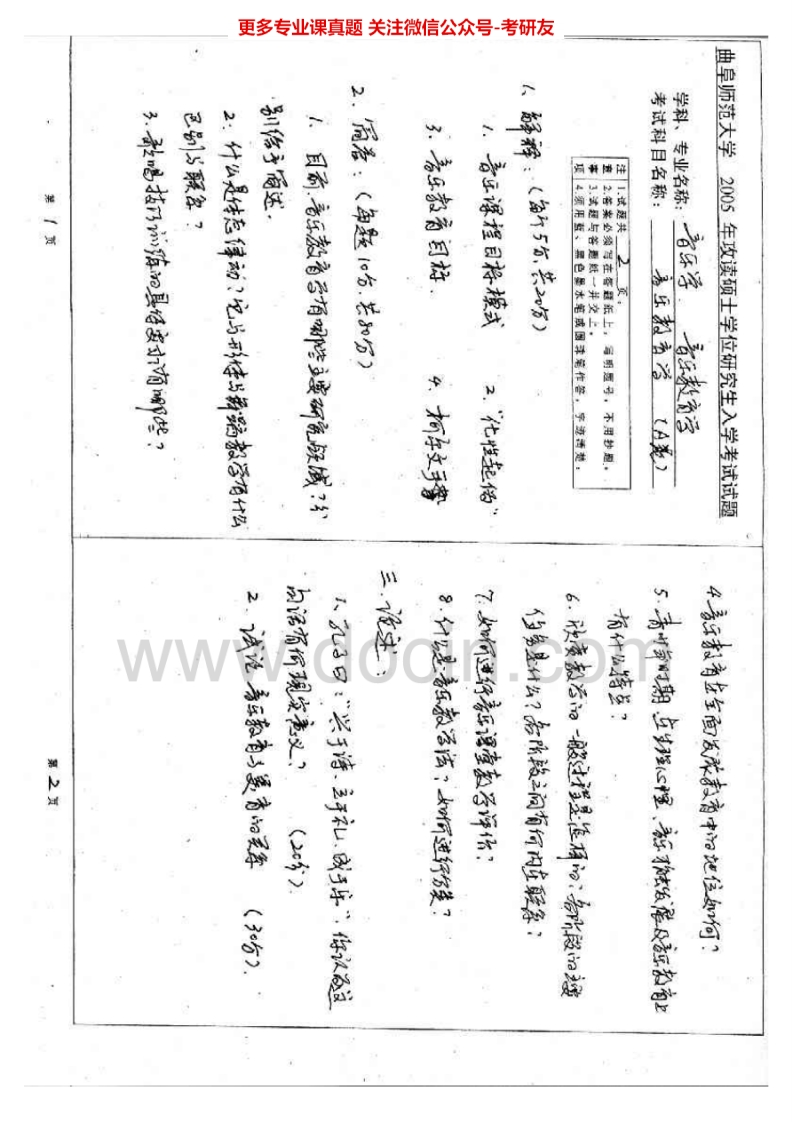 更多专业课真题 关注微信公众号-考研友
曲阜师范大学 2005 年攻读硕士学位研究生入学考试试题
学科、专业名称：音乐学 音乐教育学
考试科目名称： 音乐教育学 （A卷）
注意事项
1.试题共 2 页。
2.答案必须写在答题纸上，写明题号，不用抄题。
3.试题与答题纸一并交上。
4.须用蓝、黑色墨水笔或圆珠笔作答，字迹清楚。
1、解释：（每个5分、共20分）
1. 音乐课程目标模式 2. "化性起伪"
3. 音乐教育目标 4. 柯尔文手势
2、简答：（每题10分、共80分）
1. 目前，音乐教育学有哪些主要研究领域？分
别给予简述.
2. 什么是体态律动？它与形体与舞蹈教学有什么
区别与联系？
3. 歌唱技巧训练的具体要求有哪些？
第 1 页
4. 音乐教育在全面发展教育中的地位如何？
5. 青少年时期、在生理心理、音乐 发展及音乐教育上
有什么特点？
6. 欣赏教学的一般过程是怎样的？各阶段的主要
任务是什么？各阶段之间有何内在联系？
7. 如何进行音乐课堂教学评价？
8. 什么是音乐教学法？如何进行分类？
三、论述：
1、孔子曰："兴于诗、立于礼、成于乐"，你认为这
句话有何现实意义？ （20分）.
2. 试论音乐教育与美育的关系 （30分）.
第 2 页
www.docin.com